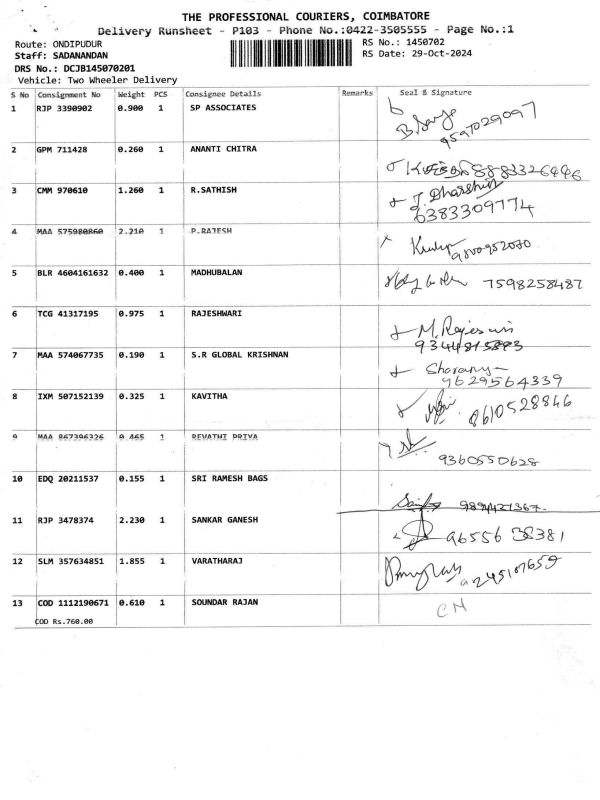 THE PROFESSIONAL COURIERS, COIMBATORE
Delivery Runsheet - P103 - Phone No.:0422-3505555 - Page No.:1
Route: ONDIPUDUR RS No.: 1450702
Staff: SADANANDAN RS Date: 29-Oct-2024
DRS No.: DCJB145070201
Vehicle: Two Wheeler Delivery
S No Consignment No Weight PCS Consignee Details Remarks Seal & Signature
1 RJP 3390902 0.900 1 SP ASSOCIATES
9597029097
2 GPM 711428 0.260 1 ANANTI CHITRA
3 CMM 970610 1.260 1 R.SATHISH
J. Dharshini
6383309774
4 MAA 575980860 2.210 1 P.RAJESH
5 BLR 4604161632 0.400 1 MADHUBALAN
7598258487
6 TCG 41317195 0.975 1 RAJESHWARI
M. Rajeswari
7 MAA 574067735 0.190 1 S.R GLOBAL KRISHNAN
Sharanya
9629564339
8 IXM 507152139 0.325 1 KAVITHA
8610528846
9 MAA 867396326 0.465 1 REVATHI PRIYA
9360550628
10 EDQ 20211537 0.155 1 SRI RAMESH BAGS
11 RJP 3478374 2.230 1 SANKAR GANESH
12 SLM 357634851 1.855 1 VARATHARAJ
13 COD 1112190671 0.610 1 SOUNDAR RAJAN CN
COD Rs.760.00